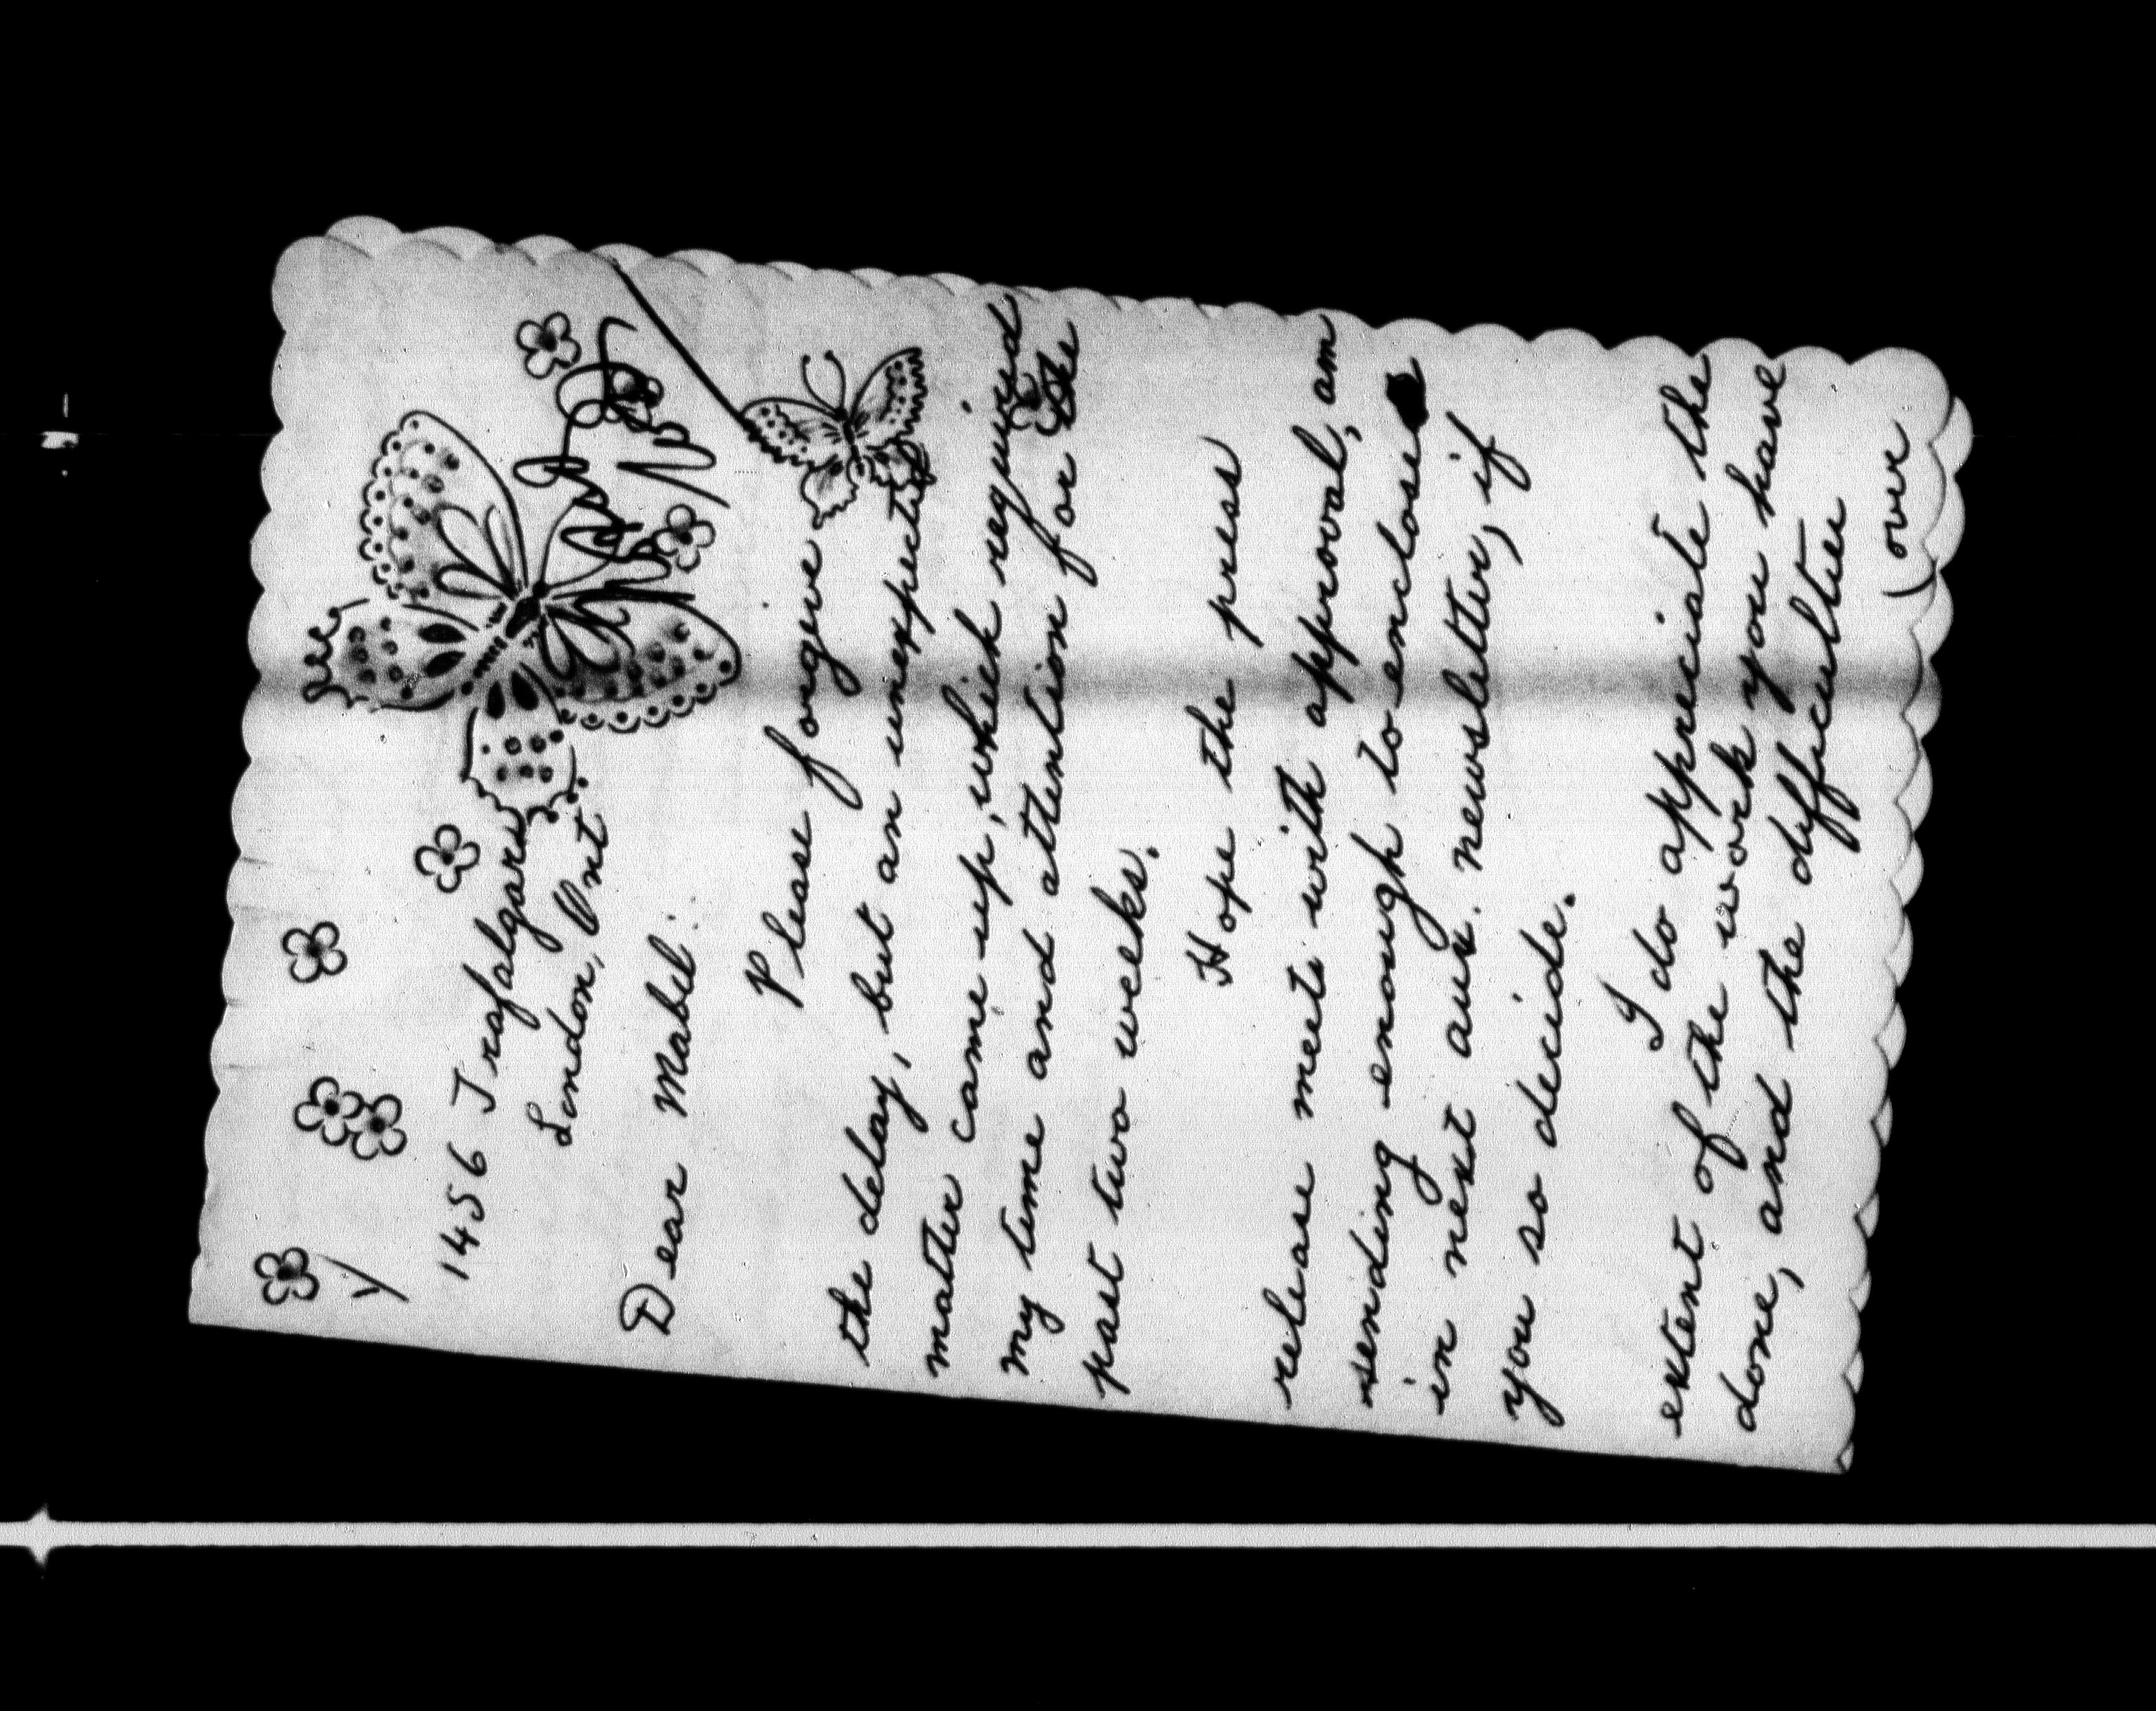 1456 Trafalgar
London, Ont.
Dear Mabel:
Please forgive
the delay, but an unexpected
matter came up, which required
my time and attention for the
past two weeks.
Hope the press
release meets with approval, am
sending enough to enclose
in next aux. newsletter, if
you so decide.
I do appreciate the
extent of the work you have
done, and the difficulties
(over